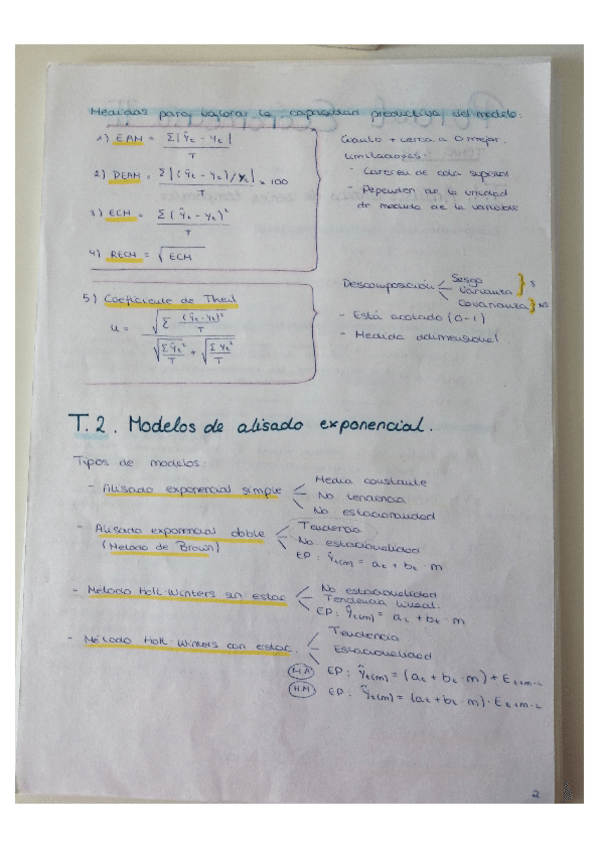 Medidas para valorar la capacidad predictiva del modelo:
1) EAM = Σ|Ŷt - Yt| / T
2) DEAM = Σ|(Ŷt - Yt)/Yt| / T × 100
3) ECM = Σ(Ŷt - Yt)² / T
4) RECM = √ECM
Cuanto + cerca a 0 mejor.
Limitaciones:
- Carecen de cota superior
- Dependen de la unidad
de medida de la variable
5) Coeficiente de Theil
U = √(Σ (Ŷt - Yt)² / T) / (√(ΣŶt² / T) + √(ΣYt² / T))
Descomposición
Sesgo
Varianza
} S
Covarianza } NS
- Está acotado (0-1)
- Medida adimensional
T.2. Modelos de alisado exponencial.
Tipos de modelos:
- Alisado exponencial simple
Media constante
No tendencia
No estacionalidad
- Alisado exponencial doble
(Método de Brown)
Tendencia
No estacionalidad
EP: Ŷt(m) = at + bt · m
- Método Holt-Winters sin estac
No estacionalidad
Tendencia lineal.
EP: Ŷt(m) = at + bt · m
- Método Holt-Winters con estac.
Tendencia
Estacionalidad
H.A EP: Ŷt(m) = (at + bt · m) + Et+m-L
H.M EP: Ŷt(m) = (at + bt · m) · Et+m-L
2